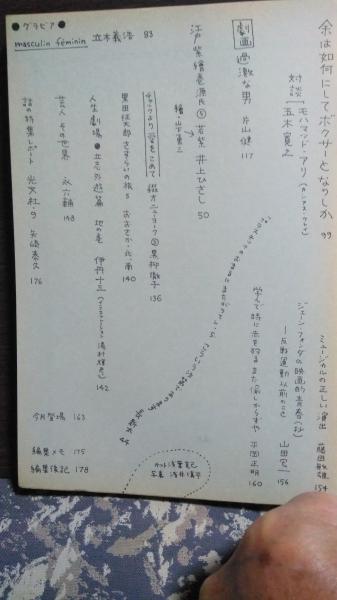 余は如何にしてボクサーとなりしか 99
対談 モハマッド・アリ(カシアス・クレイ)
五木寛之
ミュージカルの正しい演出 藤田敏雄 154
ジェーン・フォンダの映画的青春(抄)
―反戦運動以前のこと 山田宏一 156
学んで時に之を習うまた愉しからずや 平岡正明 160
劇画 過激な男 片山健 117
江戸紫絵巻源氏⑤若紫 井上ひさし 50
絵・山下勇三
チャックより愛をこめて 紐オニューヨーク② 黒柳徹子 136
黒田征太郎さすらいの旅5 おおさか・北・南 140
人生劇場●立志外遊篇 地の巻 伊丹十三(イラストレーション・湯村輝彦) 142
芸人 その世界 永六輔 148
話の特集レポート 光文社・9 矢崎泰久 176
●グラビア●
masculin féminin 立木義浩 83
今月登場 163
編集メモ 175
編集後記 178
カット 浅葉克己
写真 浅井慎平